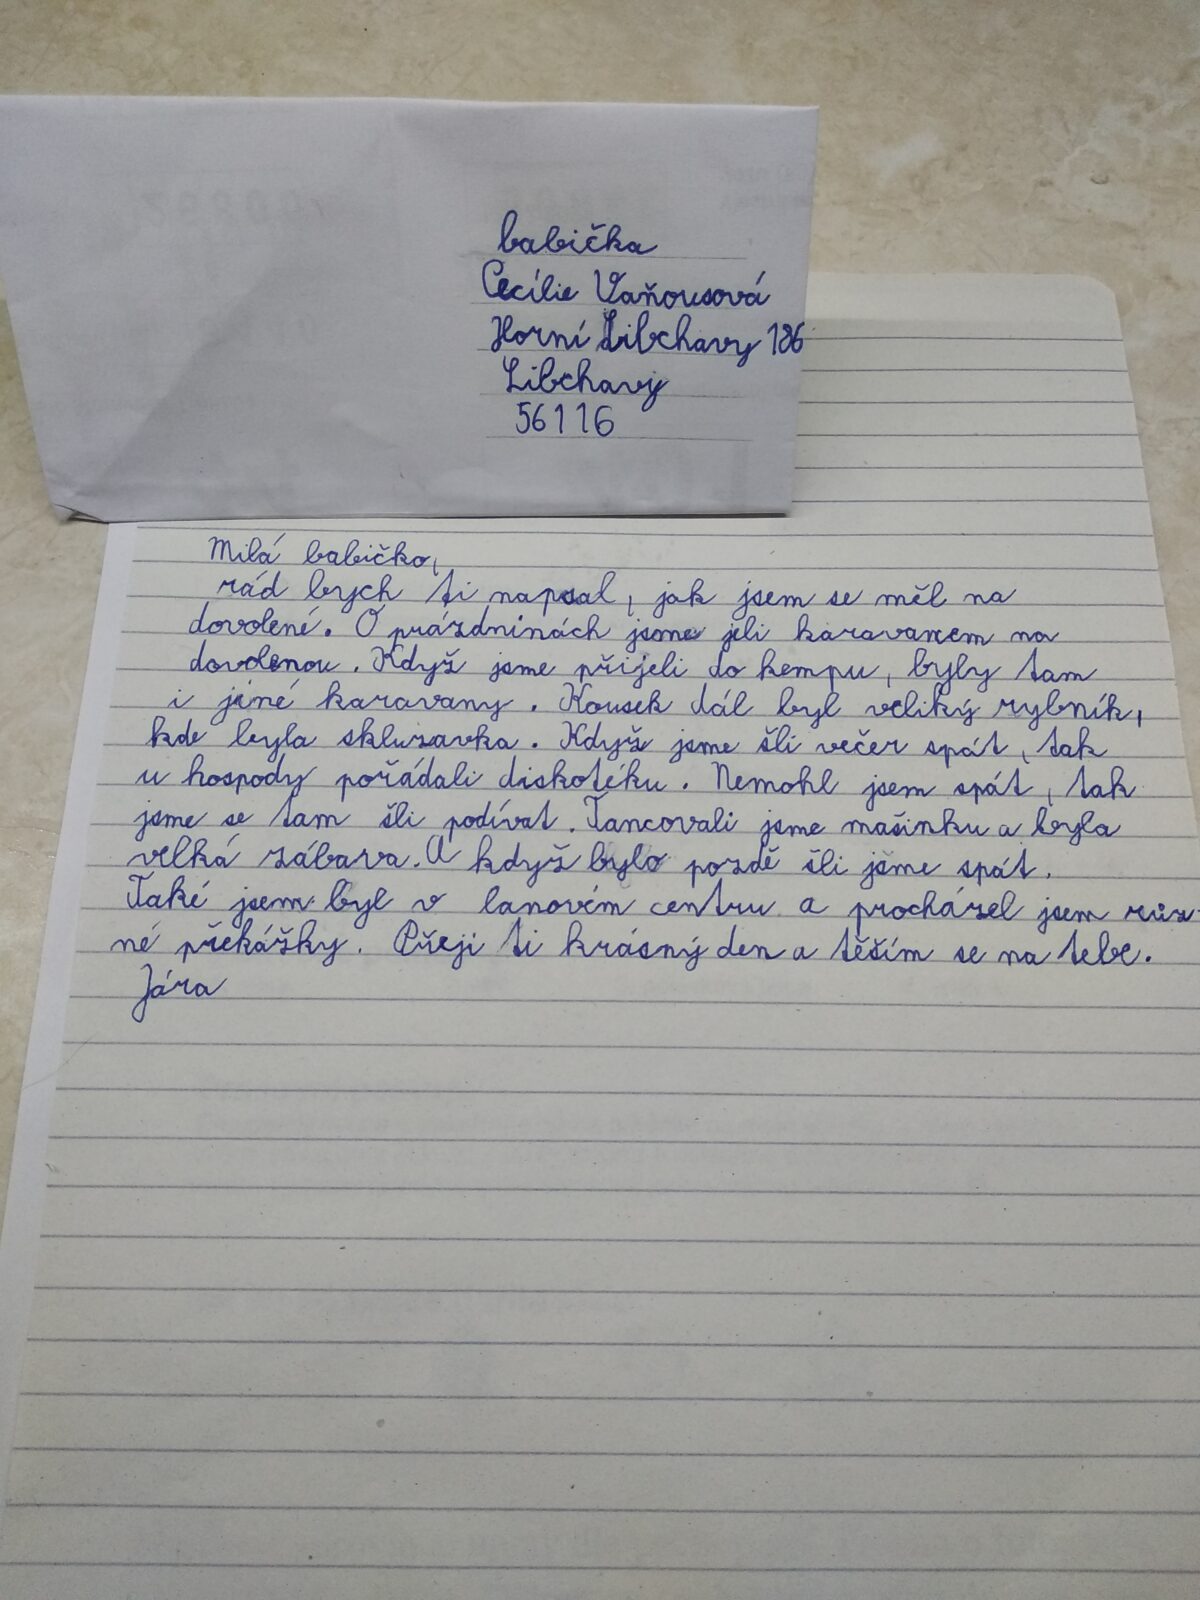 babička
Cecílie Vaňousová
Horní Libchavy 186
Libchavy
56116
Milá babičko,
rád bych ti napsal, jak jsem se měl na
dovolené. O prázdninách jsme jeli karavanem na
dovolenou. Když jsme přijeli do kempu, byly tam
i jiné karavany. Kousek dál byl veliký rybník,
kde byla skluzavka. Když jsme šli večer spát, tak
u hospody pořádali diskotéku. Nemohl jsem spát, tak
jsme se tam šli podívat. Tancovali jsme mašinku a byla
velká zábava. A když bylo pozdě šli jsme spát.
Také jsem byl v lanovém centru a procházel jsem růz-
né překážky. Přeji ti krásný den a těším se na tebe.
Jára